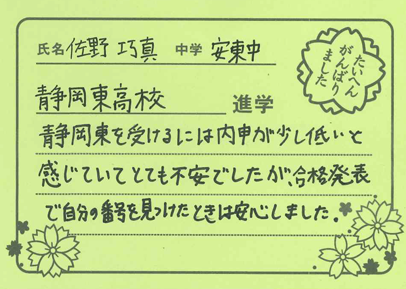 氏名 佐野 巧真 中学 安東中
たいへん
がんばり
ました
静岡東高校 進学
静岡東を受けるには内申が少し低いと
感じていてとても不安でしたが、合格発表
で自分の番号を見つけたときは安心しました。